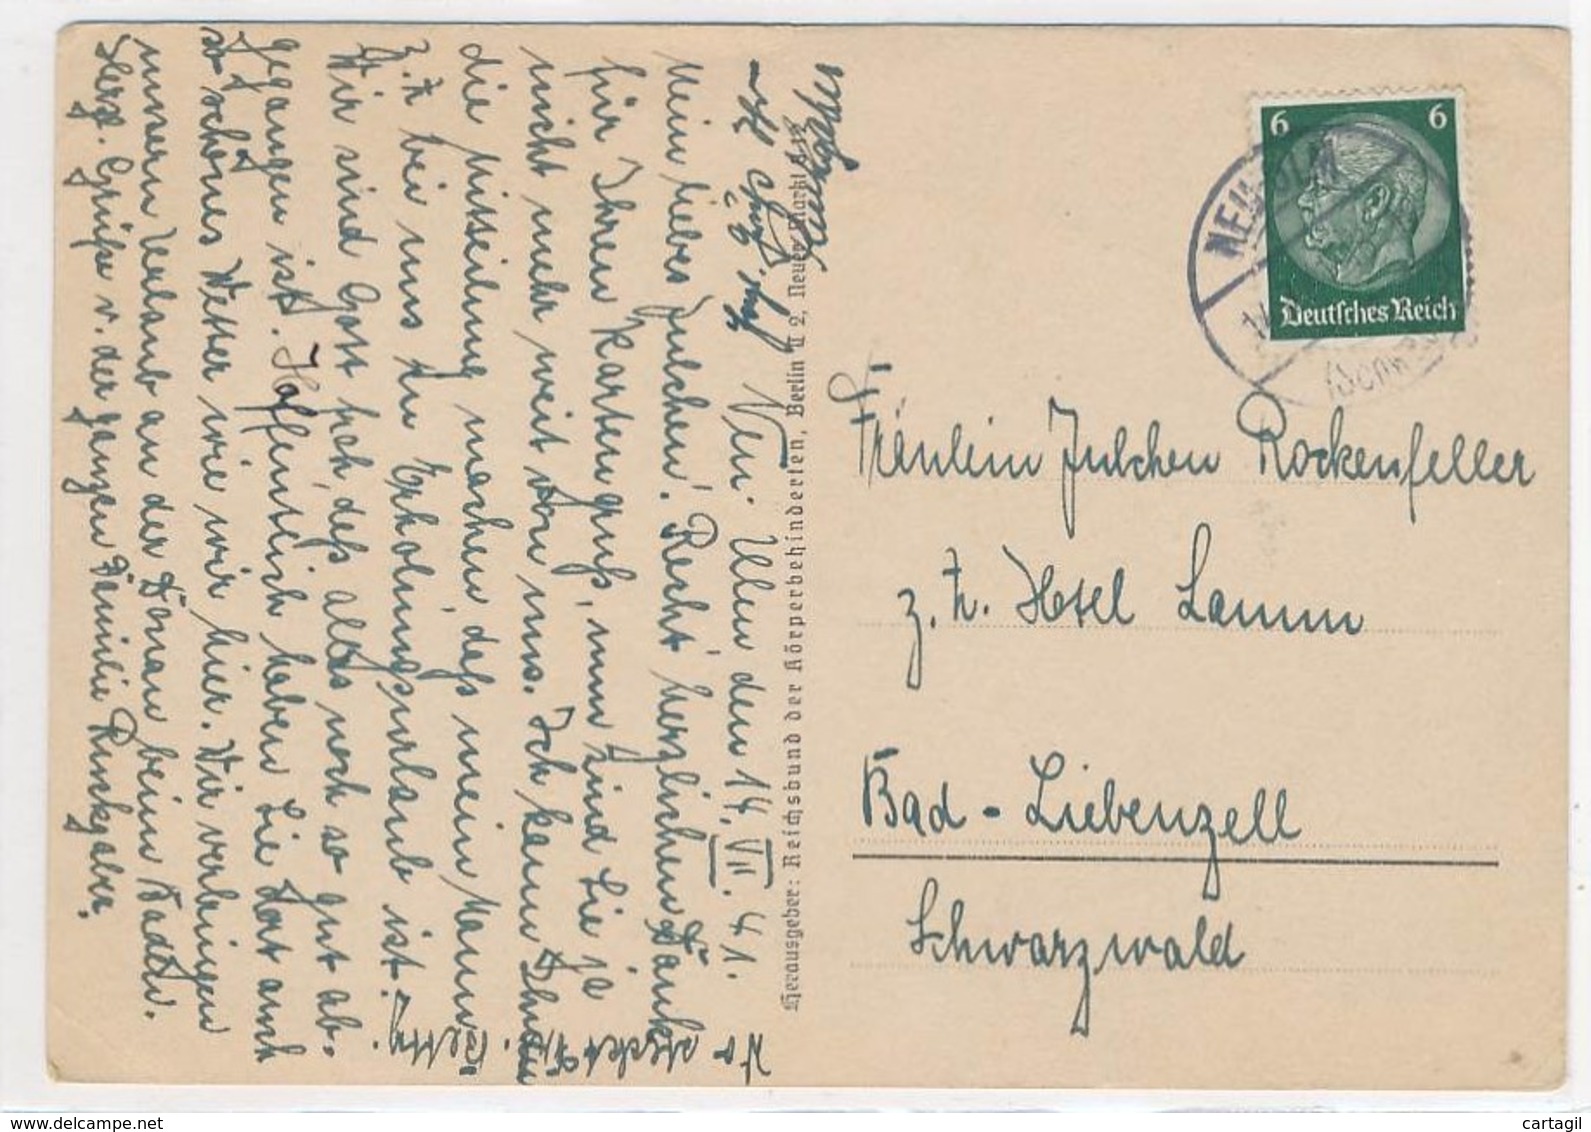 Neu-Ulm den 14. VII. 41.
Mein liebes Julchen! Recht herzlichen Dank
für Ihren Kartengruß, nun sind Sie ja
nicht mehr weit von uns. Ich kann Ihnen
die Mitteilung machen, daß mein Mann
z. Zt. bei uns in Erholungsurlaub ist.
Wir sind Gott froh, daß alles noch so gut ab-
gegangen ist. Hoffentlich haben Sie dort auch
so schönes Wetter wie wir hier. Wir verbringen
unseren Urlaub an der Donau beim Baden.
Herzl. Grüße v. der ganzen Familie Ruckgaber.
Wo steckt
Betty.
Herausgeber: Reichsbund der Körperbehinderten, Berlin C 2, Neuer Markt 8-12
6 6
Deutsches Reich
NEU-ULM
(Donau)
Fräulein Julchen Rockenfeller
z. Zt. Hotel Lamm
Bad-Liebenzell
Schwarzwald
www.delcampe.net
cartagil